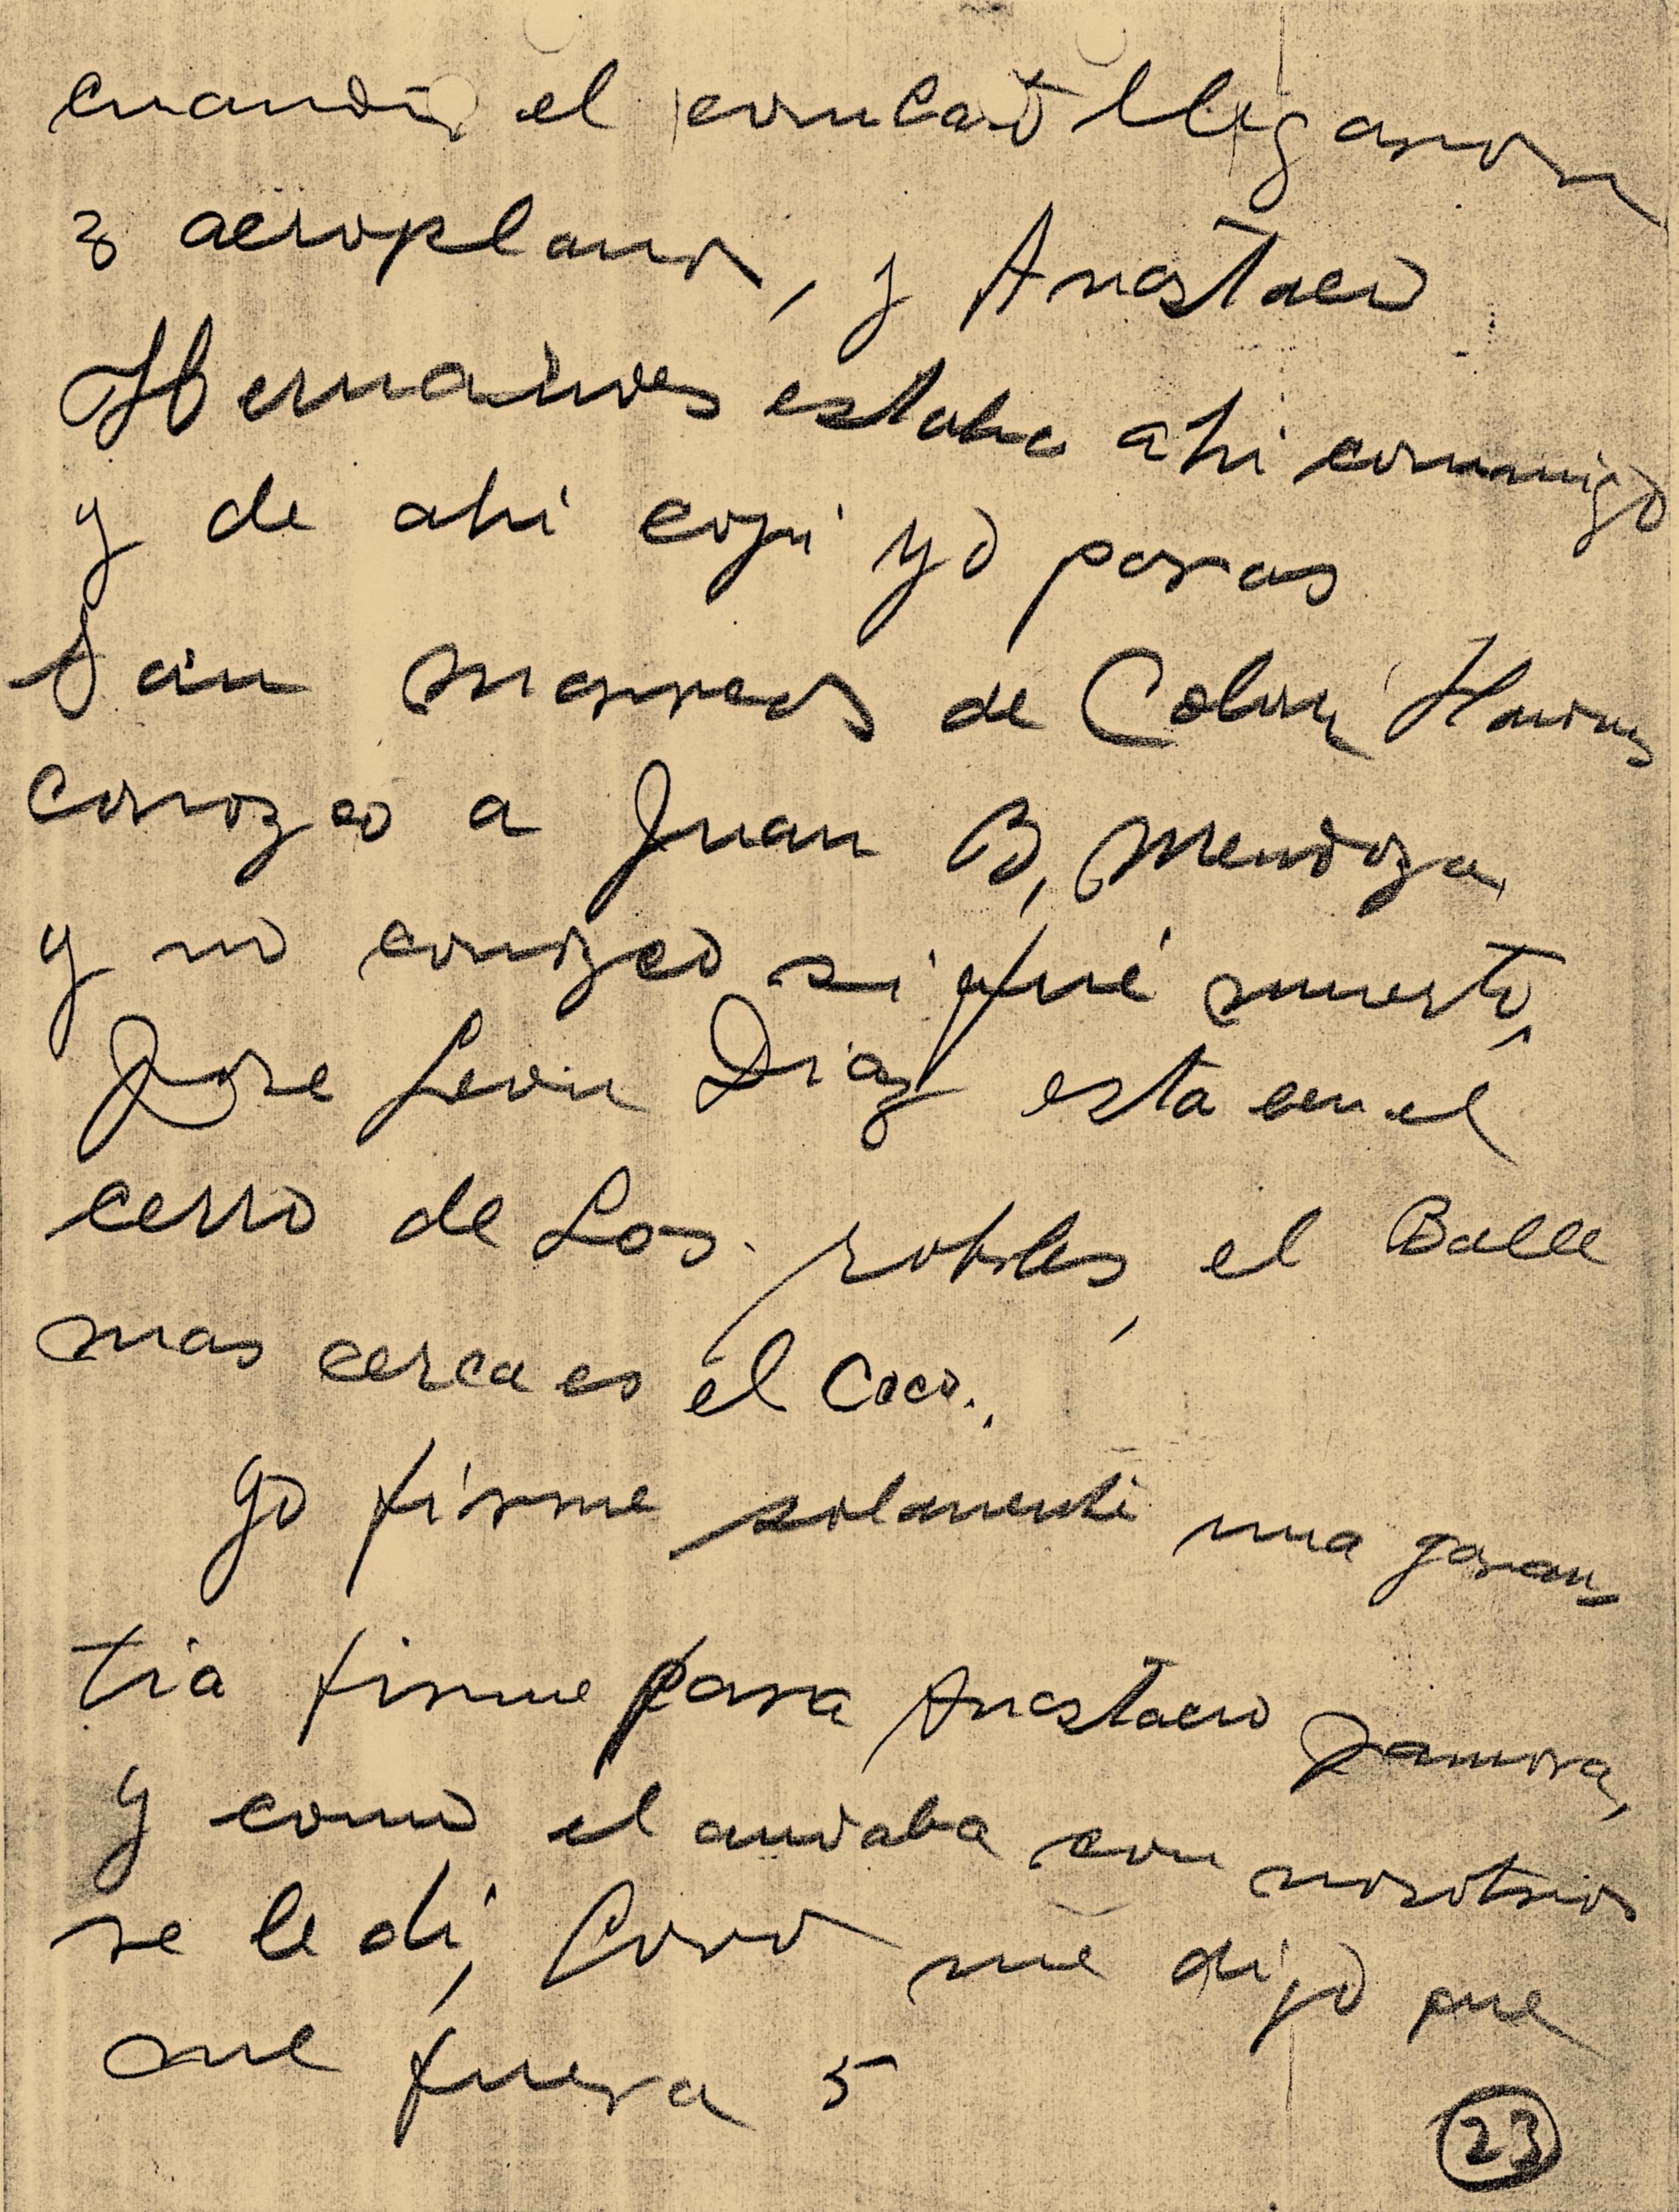 cuando el combate llegaron
3 aeroplanos, y Anastacio
Hernandes estaba ahi commigo
y de ahi cogi yo paras
San Marcos de Colon, Honduras
conozco a Juan B, Mendoza,
y no conozco si fué muerto,
Jose Leon Diaz esta en el
cerro de Los robles, el Balle
mas cerca es el Coco.
yo firme solamente una garan-
tia firme para Anastacio Zamora,
y como el andaba con nosotros
se le di, Coro me dijo que
me fuera 5
23